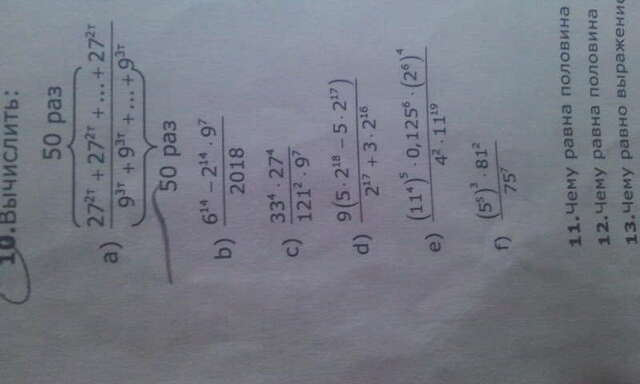 10.Вычислить:
50 раз
a) (27^{2т} + 27^{2т} + ... + 27^{2т}) / (9^{3т} + 9^{3т} + ... + 9^{3т})
50 раз
b) (6^{14} − 2^{14} · 9^7) / 2018
c) (33^4 · 27^4) / (121^2 · 9^7)
d) 9(5 · 2^{18} − 5 · 2^{17}) / (2^{17} + 3 · 2^{16})
e) ((11^4)^5 · 0,125^6 · (2^6)^4) / (4^2 · 11^{19})
f) ((5^5)^3 · 81^2) / 75^7
11.Чему равна половина
12.Чему равна половина
13.Чему равно выражение